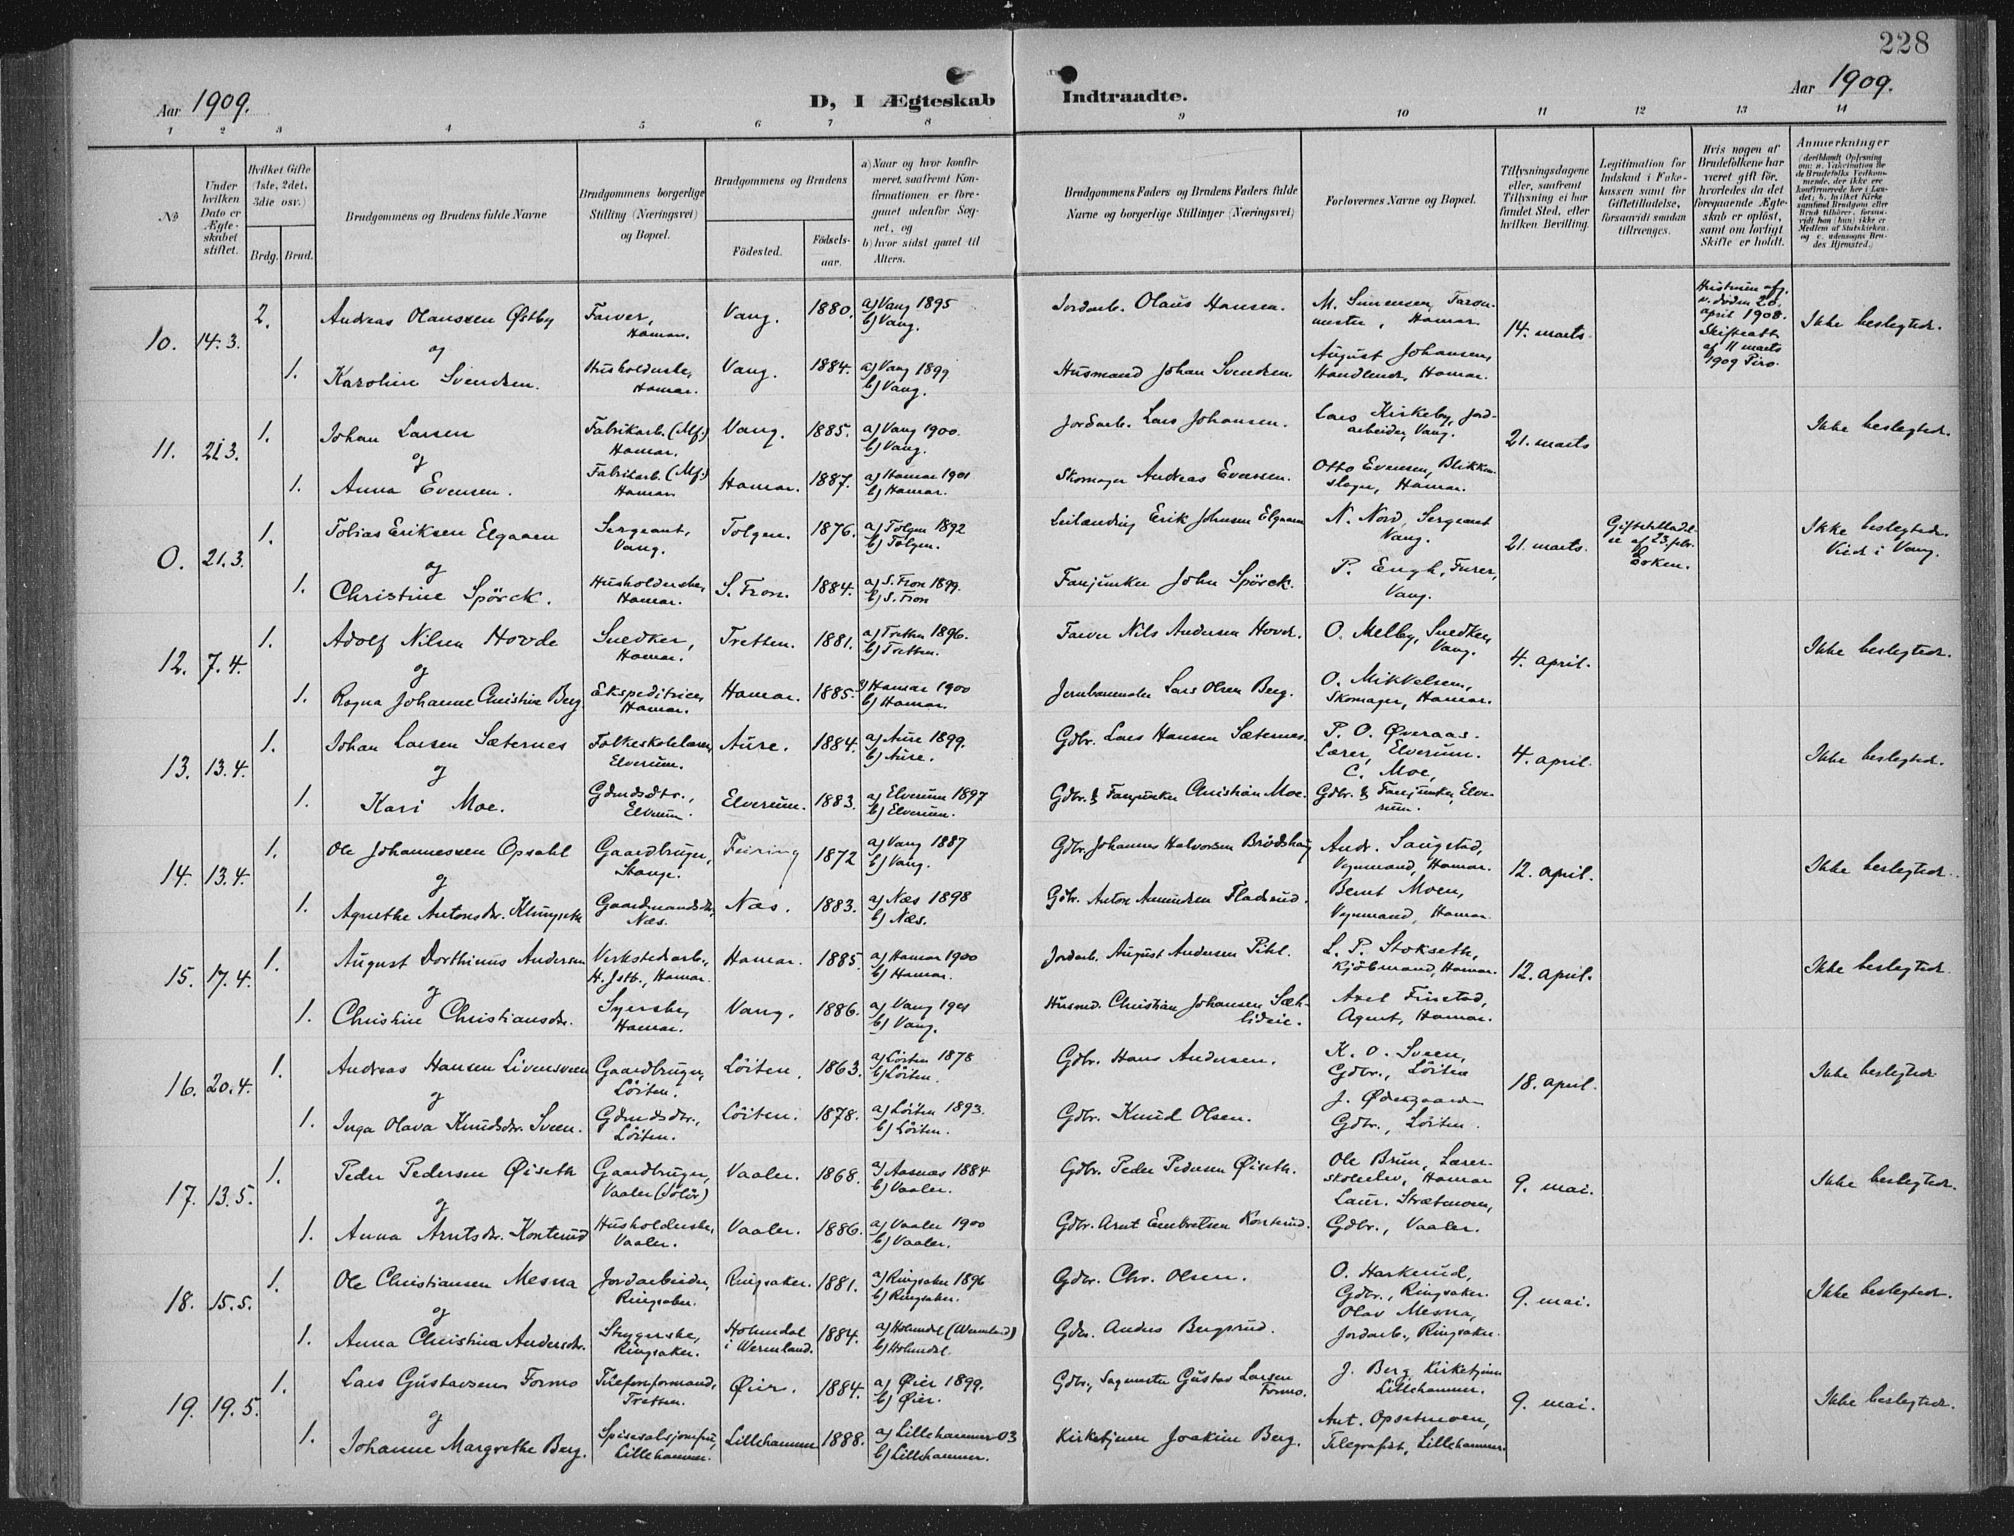 228
Aar 1909.
D, I Ægteskab Indtraadte.
Aar 1909.
1 2 3 4 5 6 7 8 9 10 11 12 13 14
No
Under hvilken Dato er Ægteskabet stiftet.
Hvilket Gifte (1ste, 2det, 3die osv.)
Brdg. Brud.
Brudgommens og Brudens fulde Navne
Brudgommens borgerlige Stilling (Næringsvei) og Bopæl.
Brudgommens og Brudens
Fødested.
Fødsels-aar.
a) Naar og hvor konfirmeret, saafremt Konfirmationen er foregaaet udenfor Sognet, og
b) hvor sidst gaaet til Alters.
Brudgommens Faders og Brudens Faders fulde Navne og borgerlige Stillinger (Næringsvei)
Forlovernes Navne og Bopæl.
Tillysningsdagene eller, saafremt Tillysning ei har fundet Sted, efter hvilken Bevilling.
Legitimation for Indskud i Enkekassen samt for Giftetilladelse, forsaavidt saadan tiltrænges.
Hvis nogen af Brudefolkene har været gift før, hvorledes da det foregaaende Ægteskab er opløst, samt om lovligt Skifte er holdt.
Anmerkninger
10. 14.3. 2. Andreas Olaussen Østby Farver, Hamar. Vang. 1880. a) Vang 1895 b) Vang. Jordarb. Olaus Hansen. M. Simensen, Hamar. 14. marts. Hustruen afg. v. døden 20. april 1908. Skifteatt. af 11 marts 1909 Ikke beslegtede.
og
1. Karoline Svendsen. Husholderske, Hamar. Vang. 1884. a) Vang 1899 b) Vang. Husmand Johan Svendsen. August Johansen, Handlende, Hamar.
11. 21.3. 1. Johan Larsen Fabrikarb. (Mf.) Hamar. Vang. 1885. a) Vang 1900. b) Vang. Jordarb. Lars Johansen. Lars Kirkeby, Jordarbeider, Vang. 21. marts Ikke beslegtede.
og
1. Anna Evensen. Fabrikarb. (Mf.) Hamar. Hamar. 1887. a) Hamar 1901 b) Hamar. Skomager Andreas Evensen. Otto Evensen, Blikkenslager, Hamar.
0. 21.3. 1. Tobias Eriksen Elgaaen Sergeant, Vang. Tolgen. 1876. a) Tolgen 1892 b) Tolgen. Leilænding Erik Johnsen Elgaaen N. Nord, Sergeant Vang. 21. marts. Giftetillad. er af 23. febr. Ikke beslegtede. Viede i Vang.
og
1. Christine Spörck. Husholderske, Hamar. S. Fron. 1884. a) S. Fron 1899. b) S. Fron Fanejunker John Spörck. P. Engh, Furer, Vang.
12. 7.4. 1. Adolf Nilsen Hovde Snedker, Hamar. Tretten. 1881. a) Tretten 1896. b) Tretten. Farver Nils Andersen Hovde. O. Melby, Snedker, Vang. 4. april. Ikke beslegtede.
og
1. Ragna Johanne Christine Berg Ekspeditrice, Hamar. Hamar. 1885. a) Hamar 1900 b) Hamar. Lars Olsen Berg. O. Mikkelsen, Skomager, Hamar.
13. 13.4. 1. Johan Larsen Sæternes Folkeskolelærer, Elverum. Aure. 1884. a) Aure 1899. b) Aure. Gdbr. Lars Hansen Sæternes. P. O. Øveraas. Lærer, Elverum. 4. april. Ikke beslegtede.
og
1. Kari Moe. Gdmdsdtr., Elverum. Elverum. 1883. a) Elverum 1897 b) Elverum. Gdbr. & Fanejunker Christian Moe. C. Moe, Gdbr. & Fanejunker, Elverum.
14. 13.4. 1. Ole Johannessen Opsahl Gaardbruger, Stange. Feiring 1872 a) Vang 1887 b) Vang. Gdbr. Johannes Halvorsen Brødshaug Andr. Saugstad, Vognmand, Hamar. 12. april. Ikke beslegtede.
og
1. Agnethe Antonsdr. Klungseth Gaardmandsdtr., Næs. Næs. 1883. a) Næs 1898 b) Næs. Gdbr. Anton Amundsen Fladsrud. Bernt Moen, Vognmand, Hamar.
15. 17.4. 1. August Dorthinus Andersen Verkstedsarb., H. Jstb., Hamar. Hamar. 1885. a) Hamar 1900 b) Hamar. Jordarb. August Andersen Pihl. L. P. Stokseth, Kjöbmand, Hamar. 12. april. Ikke beslegtede.
og
1. Christine Christiansdr. Syerske, Hamar. Vang. 1886. a) Vang 1901 b) Vang. Husmd. Christian Johansen Sæhlideie. Axel Finstad, Agent, Hamar.
16. 20.4. 1. Andreas Hansen Livensveen Gaardbruger, Löiten. Löiten. 1863. a) Löiten 1878 b) Löiten. Gdbr. Hans Andersen. K. O. Sveen, Gdbr., Löiten 18. april. Ikke beslegtede
og
1. Inga Olava Knudsdr. Sveen. Gdmdsdtr., Löiten. Löiten. 1878. a) Löiten 1893. b) Löiten. Gdbr. Knud Olsen. J. Ødegaard Gdbr., Löiten.
17. 13.5. 1. Peder Pedersen Øiseth Gaardbruger, Vaaler (Solör) Vaaler. 1868. a) Aasnæs 1884 b) Vaaler. Gdbr. Peder Pedersen Øiseth. Ole Brun, Lærerskoleelev, Hamar 9. mai. Ikke beslegtede.
og
1. Anna Arntsdr. Konterud Husholderske, Vaaler. Vaaler. 1886. a) Vaaler 1900 b) Vaaler. Gdbr. Arnt Embretsen Konterud. Laur. Strætmoen, Gdbr., Vaaler.
18. 15.5. 1. Ole Christiansen Mesna Jordarbeider, Ringsaker. Ringsaker. 1881. a) Ringsaker 1896 b) Ringsaker. Gdbr. Chr. Olsen. O. Harkerud, Gdbr., Ringsaker. 9. mai. Ikke beslegtede.
og
1. Anna Christina Andersdr. Strygerske, Ringsaker. Holmedal i Wermland. 1884. a) Holmedal (Wermland) b) Holmedal. Gdbr. Anders Bergsrud. Olav Mesna, Jordarb., Ringsaker.
19. 19.5. 1. Lars Gustavsen Formo Telefonformand, Tretten. Øier. 1884. a) Øier 1899. b) Øier. Gdbr., Sagmester Gustav Larsen Formo. J. Berg, Kirketjener Lillehammer. 9. mai. Ikke beslegtede.
og
1. Johanne Margrethe Berg. Spisesalsjomfru, Lillehammer. Lillehammer 1888. a) Lillehammer 03 b) Lillehammer. Kirketjener Joakim Berg. Ant. Opsetmoen, Telegrafist, Lillehammer.